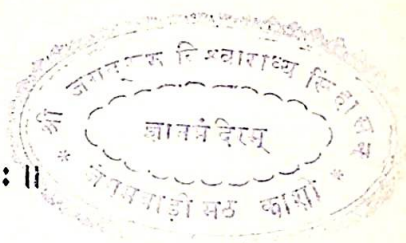 श्री जगद्गुरु विश्वाराध्य सिंहासन
ज्ञानमंदिरम्
: ॥
* जंगमवाड़ी मठ काशी *